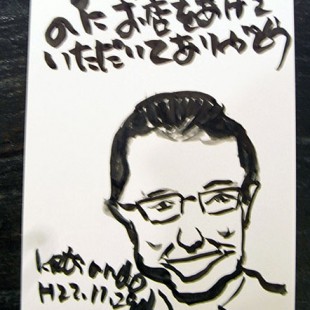 のにお店をあけて
いただいてありがとう
H22.11.29